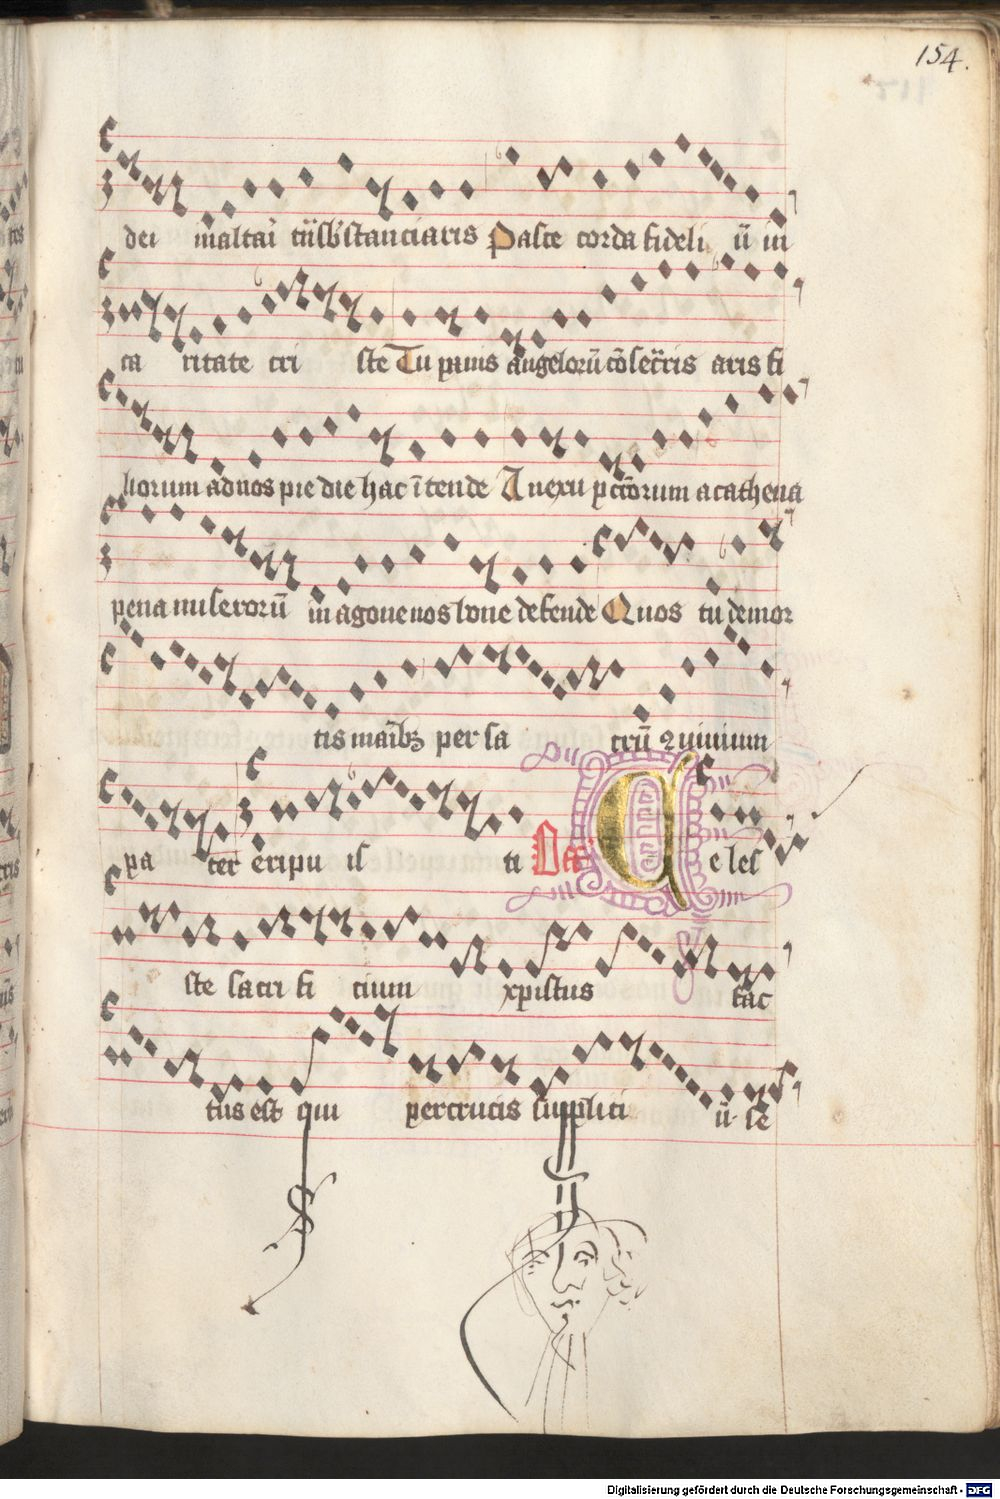 154.
dei in altari tūsb'stanciaris Paste corda fideli ū in
ca ritate cri ste Tu panis angelorū cōsecr̄ris aris fi
liorum ad nos pie die hac ītende A nexu pccōrum a cathena
pena miserorū in agone nos bone defende Quos tu de mor
tis maībꝫ per sa crū ꝛ uiuium
pa ter eripu is ti C e les
ste sacri fi cium xpistus fac
tus est qui per crucis suppliti ū se
Digitalisierung gefördert durch die Deutsche Forschungsgemeinschaft - DFG